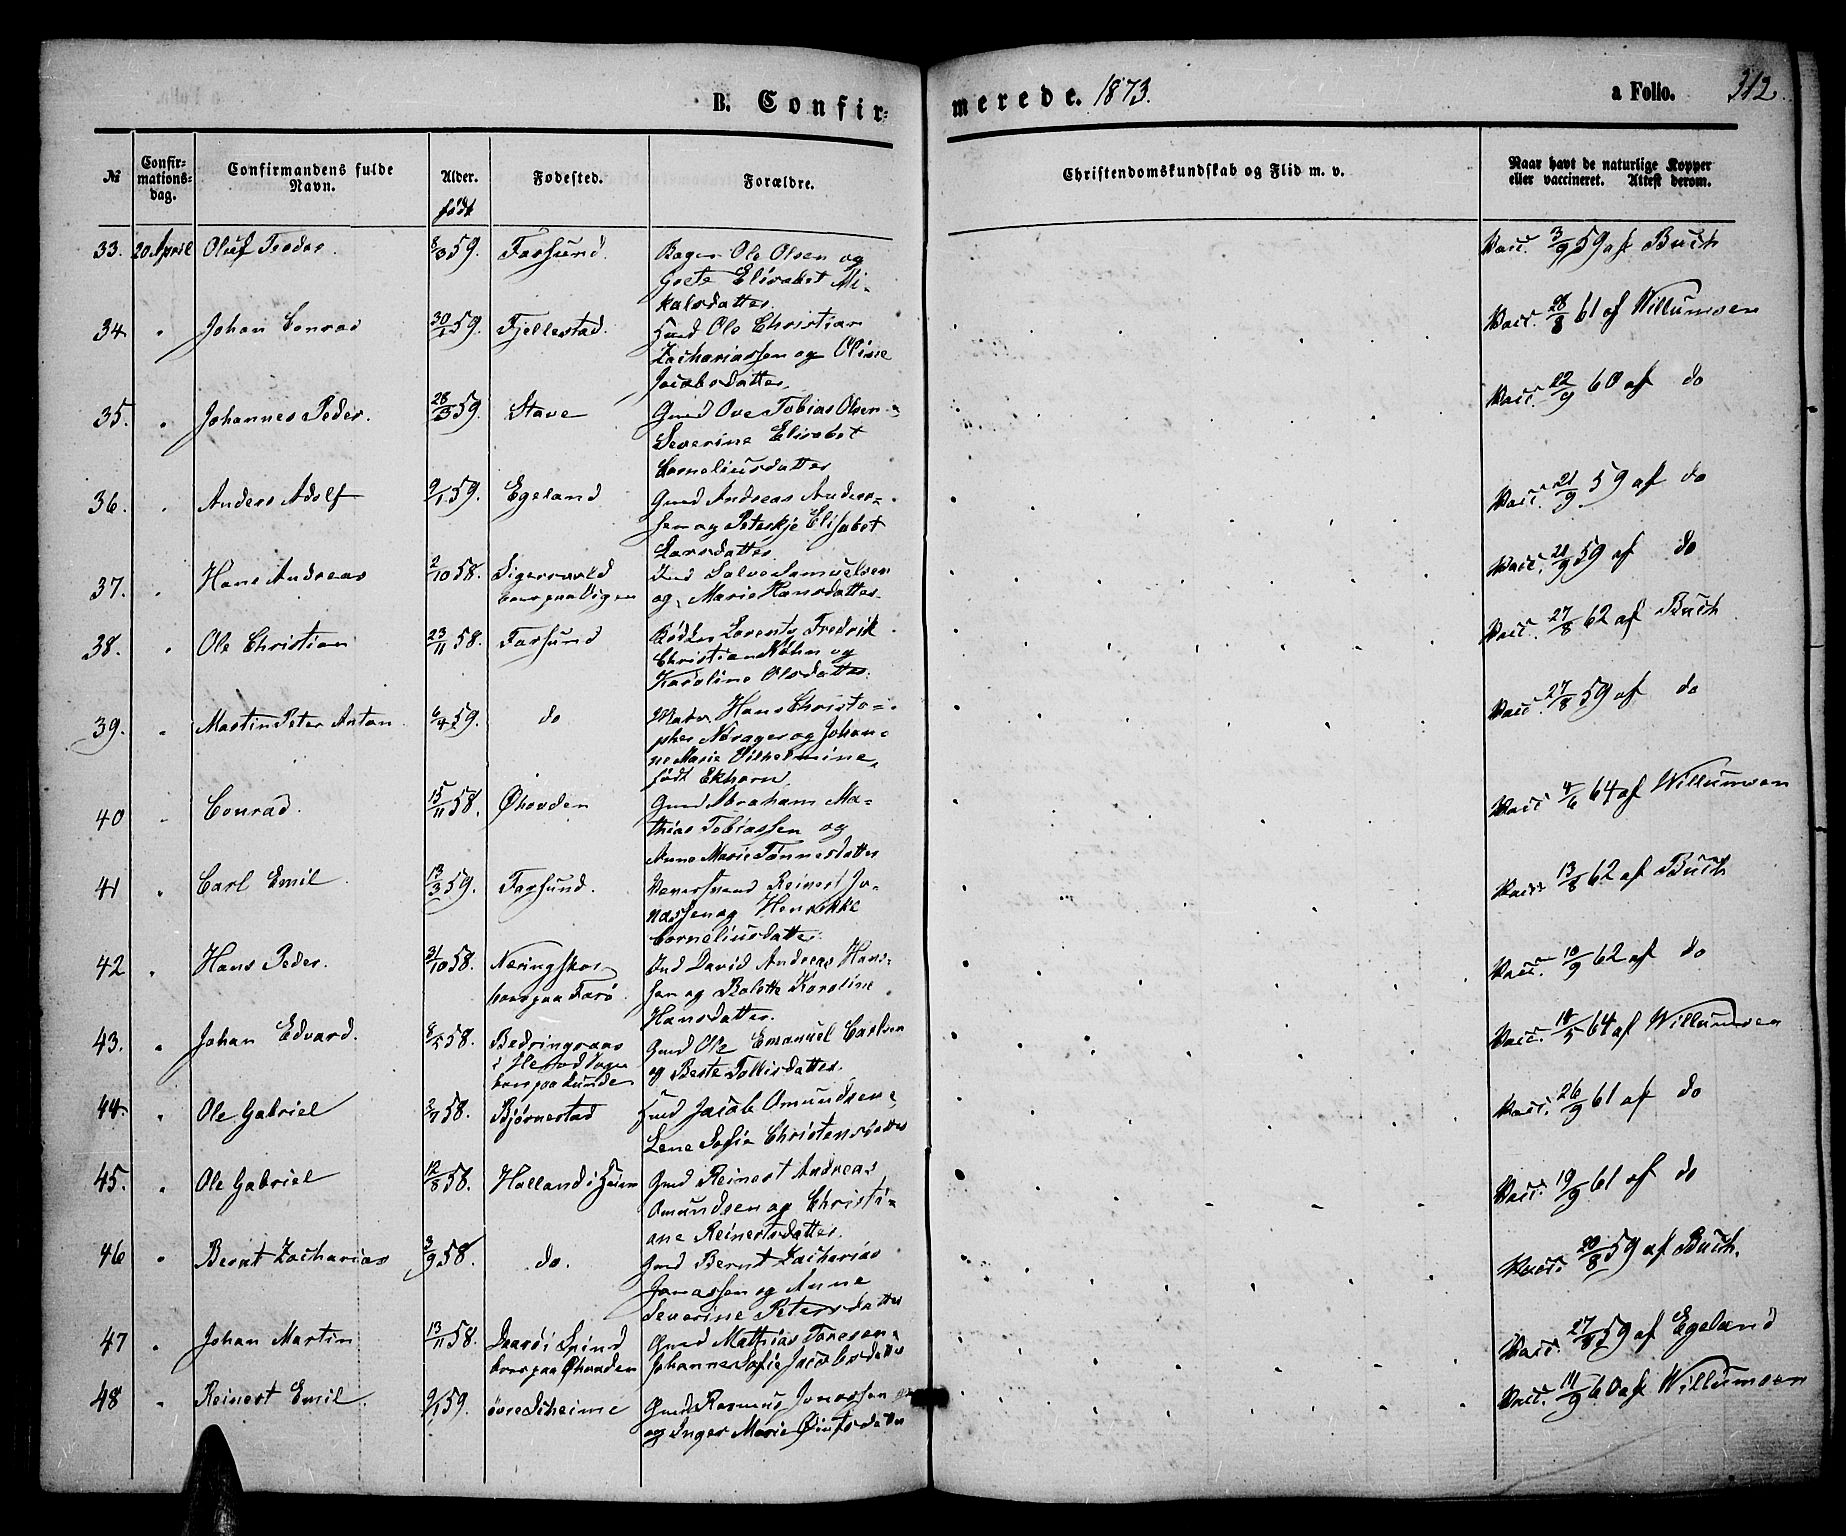 B. Confirmerede. 1873. a Folio. 312.
№ Confirmationsdag. Confirmandens fulde Navn. Alder. født Fødested. Forældre. Christendomskundskab og Flid m. v. Naar havt de naturlige Kopper eller vaccineret. Attest derom.
33. 20 April Oluf Teodor. 8/3 59. Farsund. Bager Ole Olsen og Vacc. 3/9 59 af Buch
Grete Elisabet Mi-
kalsdatter.
34 " Johan Conrad 30/1 59. Fjellestad. Hmd Ole Christian Vacc. 28/8 61 af Willumsen
Zachariassen og Oline
Jacobsdatter.
35. " Johannes Peder. 28/3 59. Stave Gmd Ove Tobias Olsen Vacc. 22/9 60 af do
Severine Elisabet
Corneliusdatter
36. " Anders Adolf 9/1 59. Egeland Gmd Andreas Ander- Vacc. 21/9 59 af do
sen og Peterskje Elisabet
Larsdatter
37. " Hans Andreas 2/10 58. Sigersvold Ind Salve Samuelsen Vacc. 21/9 59 af do
og Marie Hansdatter.
38. " Ole Christian 23/11 58. Farsund Bødker Lorents Fredrik Vacc. 27/8 62 af Buch
Christian Køhn og
Karoline Olsdatter.
39. " Martin Peter Anton 6/4 59. do Matr. Hans Christo- Vacc. 27/8 59 af do
pher Nørager og Johan-
ne Marie Vilhelmine,
født Ekhorn
40 " Conrad. 15/11 58. Øhovden Gmd Abraham Ma- Vacc. 4/6 64 af Willumsen
thias Tobiassen og
Anne Marie Tønnesdatter
41 " Carl Emil. 13/3 59. Farsund. Reinert Jo- Vacc. 13/8 62 af Buch
nassen og Henrikke
Corneliusdatter.
42 " Hans Peder. 31/10 58. Ind David Andreas Hans- Vacc. 10/9 62 af do
boer paa Farø. sen og Bolette Karoline
Hansdatter.
43. " Johan Edvard. 8/5 58. Gmd Ole Emanuel Carlsen Vacc. 18/5 64 af Willumsen
og Berte Tollisdatter.
boer paa Lunde
44. " Ole Gabriel 2/7 58. Bjørnestad Hmd Jacob Omundsen, Vacc. 26/9 61 af do
Lene Sofie Christensdatter
45. " Ole Gabriel 12/8 58. Holland i Gmd Reinert Andreas Vacc. 19/9 61 af do
Omundsen og Christi-
ane Reinertsdatter.
46 " Bernt Zacharias 3/9 58. do. Gmd Bernt Zacharias Vacc. 20/8 59 af Buch.
Jonassen og Anne
Severine Petersdatter
47 " Johan Martin 13/11 58. i Spind Gmd Mathias Toresen Vacc. 27/8 59 af Egeland
boer paa Øhovden Johanne Sofie Jacobsdatter
48 " Reinert Emil. 9/1 59. Gmd Rasmus Jonassen Vacc. 14/9 60 af Willumsen
og Inger Marie